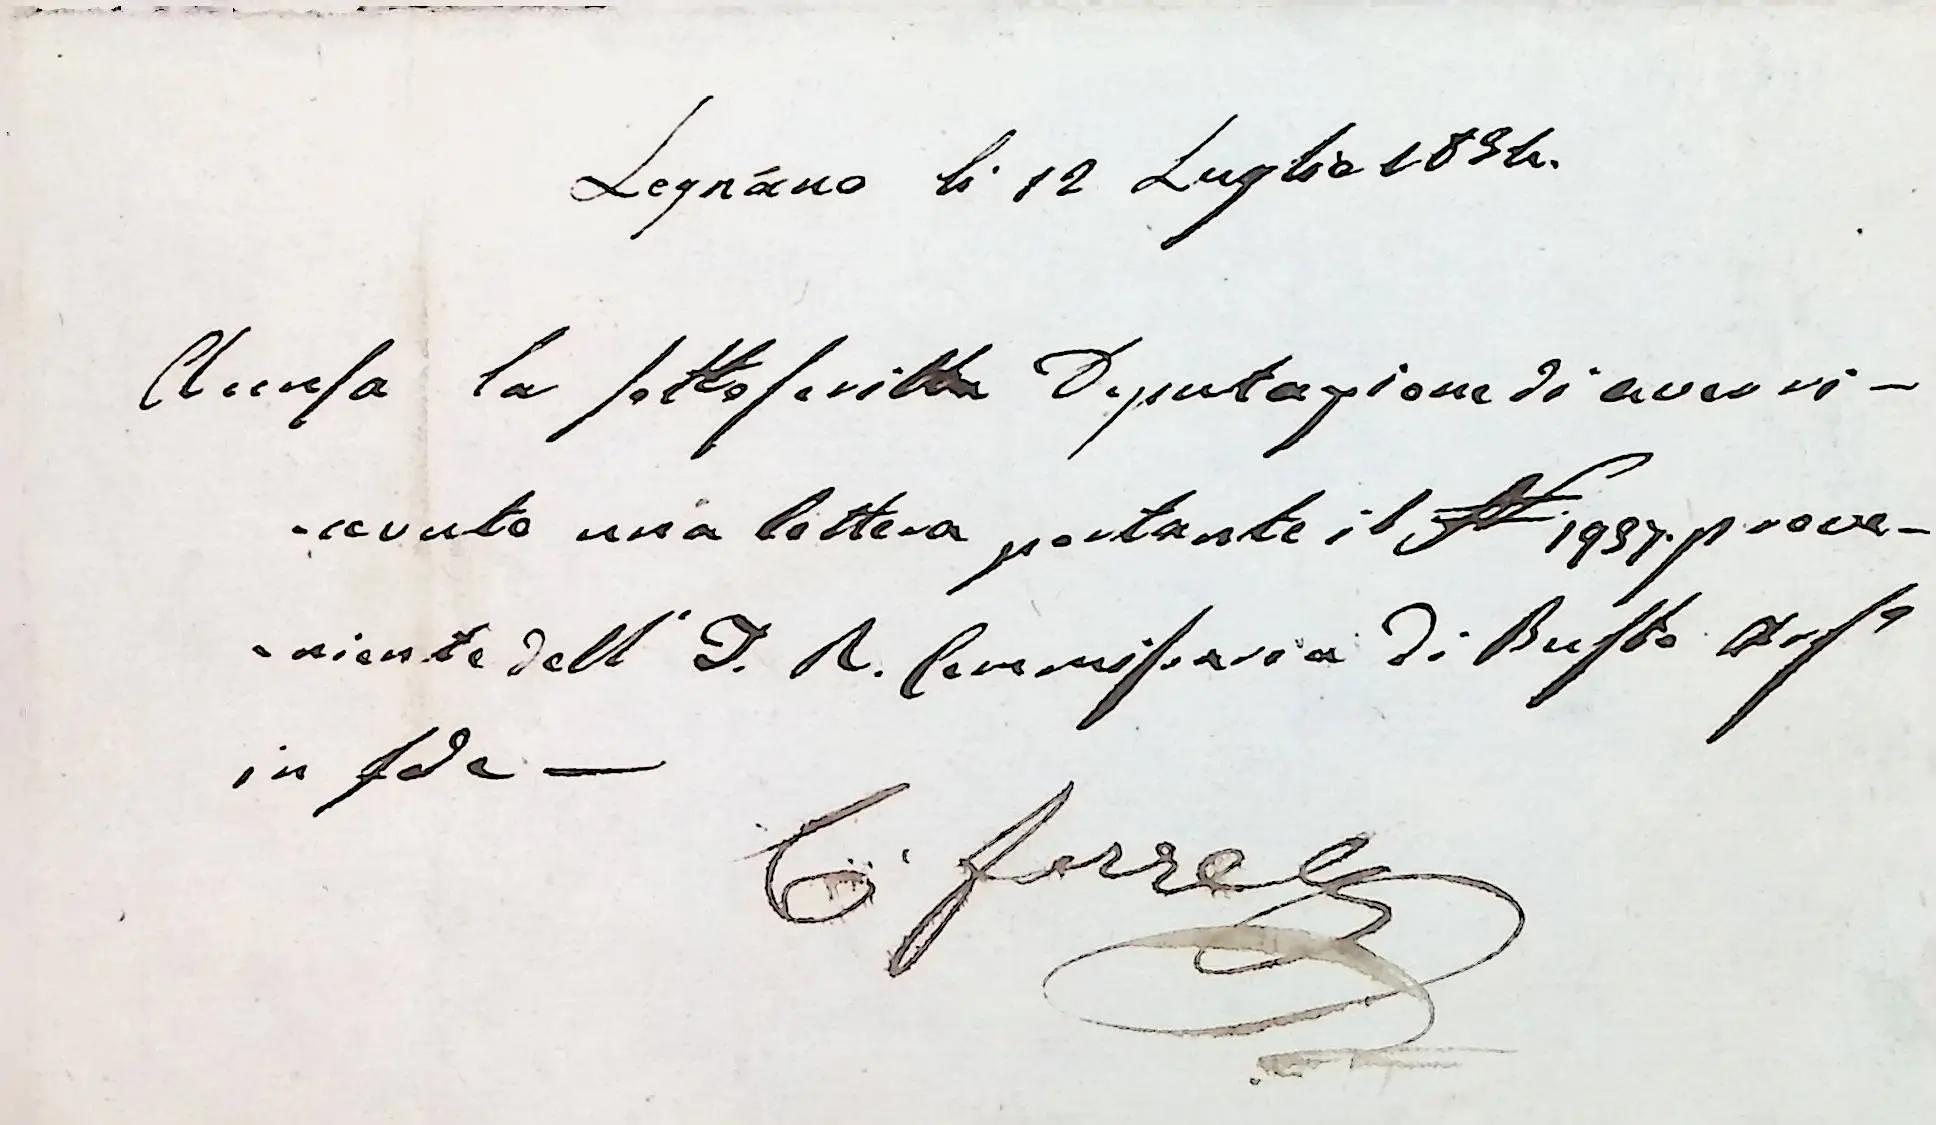 Legnano li 12 Luglio 1834.
Accusa la sottoscritta Deputazione di aver ri-
-cevuto una lettera portante il N.° 1937. prove-
-niente dell' I. R. Commissaria di Busto Ars°
in fede —